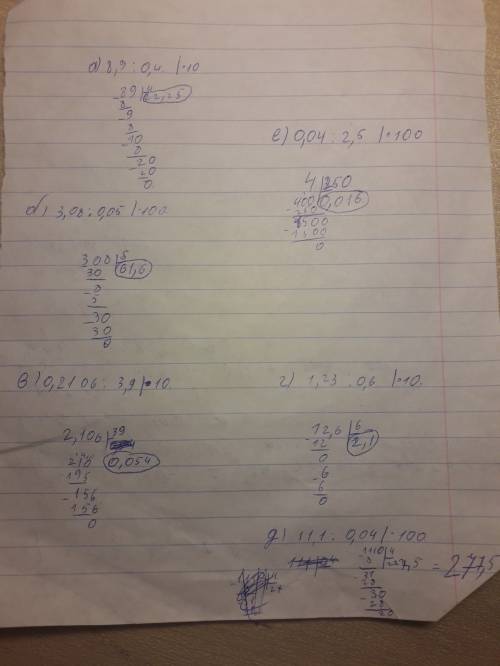 а) 8,9 : 0,4 |·10
89 |4
8 22,25
- 9
8
- 10
8
- 20
20
0
б) 3,08 : 0,05 |·100.
308 |5
30 61,6
- 8
5
- 30
30
0
в) 0,2106 : 3,9 |·10.
2,106 |39
210 0,054
195
- 156
156
0
е) 0,04 : 2,5 |·100
4 |250
400 0,016
- 250
1500
- 1500
0
г) 1,23 : 0,6 |·10.
- 12,6 |6
12 2,1
0
- 6
6
0
д) 11,1 : 0,04 |·100
1110 |4
- 8 = 277,5
31
28
- 30
28
20